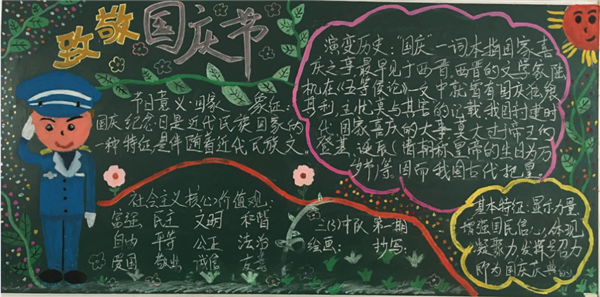 致敬国庆节
节日意义:国家 象征:
国庆纪念日是近代民族国家的
一种特征是伴随着近代民族文
演变历史:"国庆"一词本指国家喜
庆之事最早见于西晋.西晋的文学家陆
机在《五等侯论》一文中就曾有国庆独飨
其利,主忧莫与其害的记载.我国封建时
代、国家喜庆的大事莫大过帝王的
登基、诞辰(清朝称皇帝的生日为万
岁节)等因而我国古代把皇
社会主义核心价值观:
富强 民主 文明 和谐
自由 平等 公正 法治
爱国 敬业 诚信 友善
三(3)中队 第一期
绘画: 抄写:
基本特征:显示力量
增强国民信心,体现
凝聚力,发挥号召力
即为国庆庆典